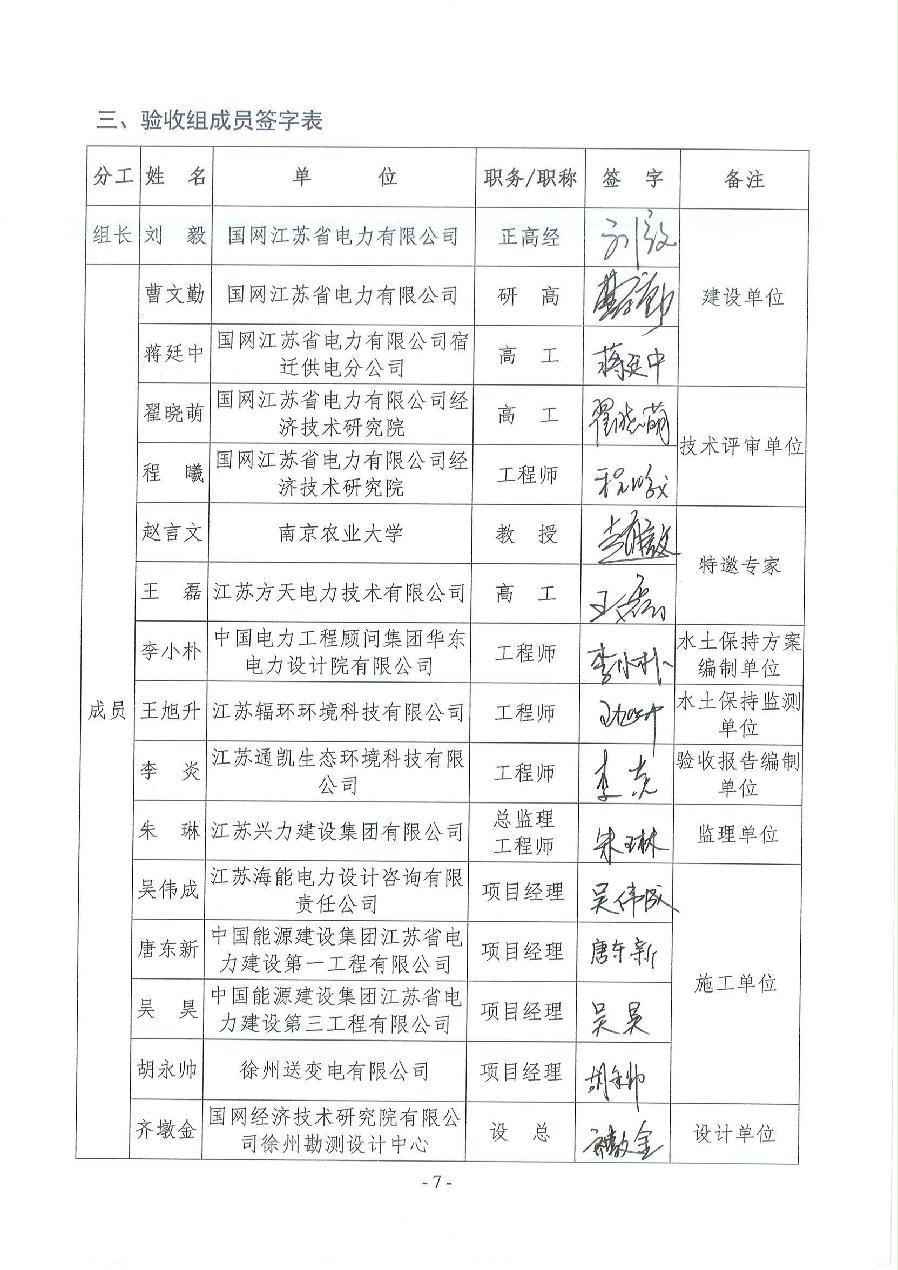 三、验收组成员签字表
分工 姓 名 单 位 职务/职称 签 字 备注
组长 刘 毅 国网江苏省电力有限公司 正高经 刘毅 建设单位
成员
曹文勤 国网江苏省电力有限公司 研 高 曹文勤
蒋廷中 国网江苏省电力有限公司宿
迁供电分公司 高 工 蒋廷中
翟晓萌 国网江苏省电力有限公司经
济技术研究院 高 工 翟晓萌 技术评审单位
程 曦 国网江苏省电力有限公司经
济技术研究院 工程师 程曦
赵言文 南京农业大学 教 授 特邀专家
王 磊 江苏方天电力技术有限公司 高 工 王磊
李小朴 中国电力工程顾问集团华东
电力设计院有限公司 工程师 李小朴 水土保持方案
编制单位
王旭升 江苏辐环环境科技有限公司 工程师 王旭升 水土保持监测
单位
李 炎 江苏通凯生态环境科技有限
公司 工程师 李炎 验收报告编制
单位
朱 琳 江苏兴力建设集团有限公司 总监理
工程师 朱琳 监理单位
吴伟成 江苏海能电力设计咨询有限
责任公司 项目经理 吴伟成 施工单位
唐东新 中国能源建设集团江苏省电
力建设第一工程有限公司 项目经理 唐东新
吴 昊 中国能源建设集团江苏省电
力建设第三工程有限公司 项目经理 吴昊
胡永帅 徐州送变电有限公司 项目经理 胡永帅
齐墩金 国网经济技术研究院有限公
司徐州勘测设计中心 设 总 齐墩金 设计单位
- 7 -